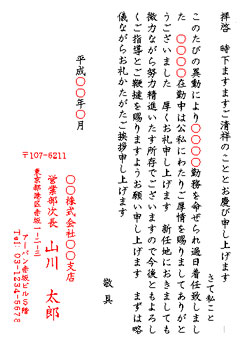 拝啓　時下ますますご清祥のこととお慶び申し上げます
さて私こと
このたびの異動により〇〇〇〇勤務を命ぜられ過日着任致しまし
た　〇〇〇〇在勤中は公私にわたりご厚情を賜りましてありがと
うございました　厚くお礼申し上げます　新任地におきましても
微力ながら努力精進いたす所存でございますので今後ともよろし
くご指導とご鞭撻を賜りますようお願い申し上げます　まずは略
儀ながらお礼かたがたご挨拶申し上げます
敬具
平成〇〇年〇月
〇〇株式会社〇〇支店
営業部次長　山川　太郎
〒107-6211
東京都港区赤坂一-二-三
アーバン赤坂ビル9階
Tel: 03-1234-5678